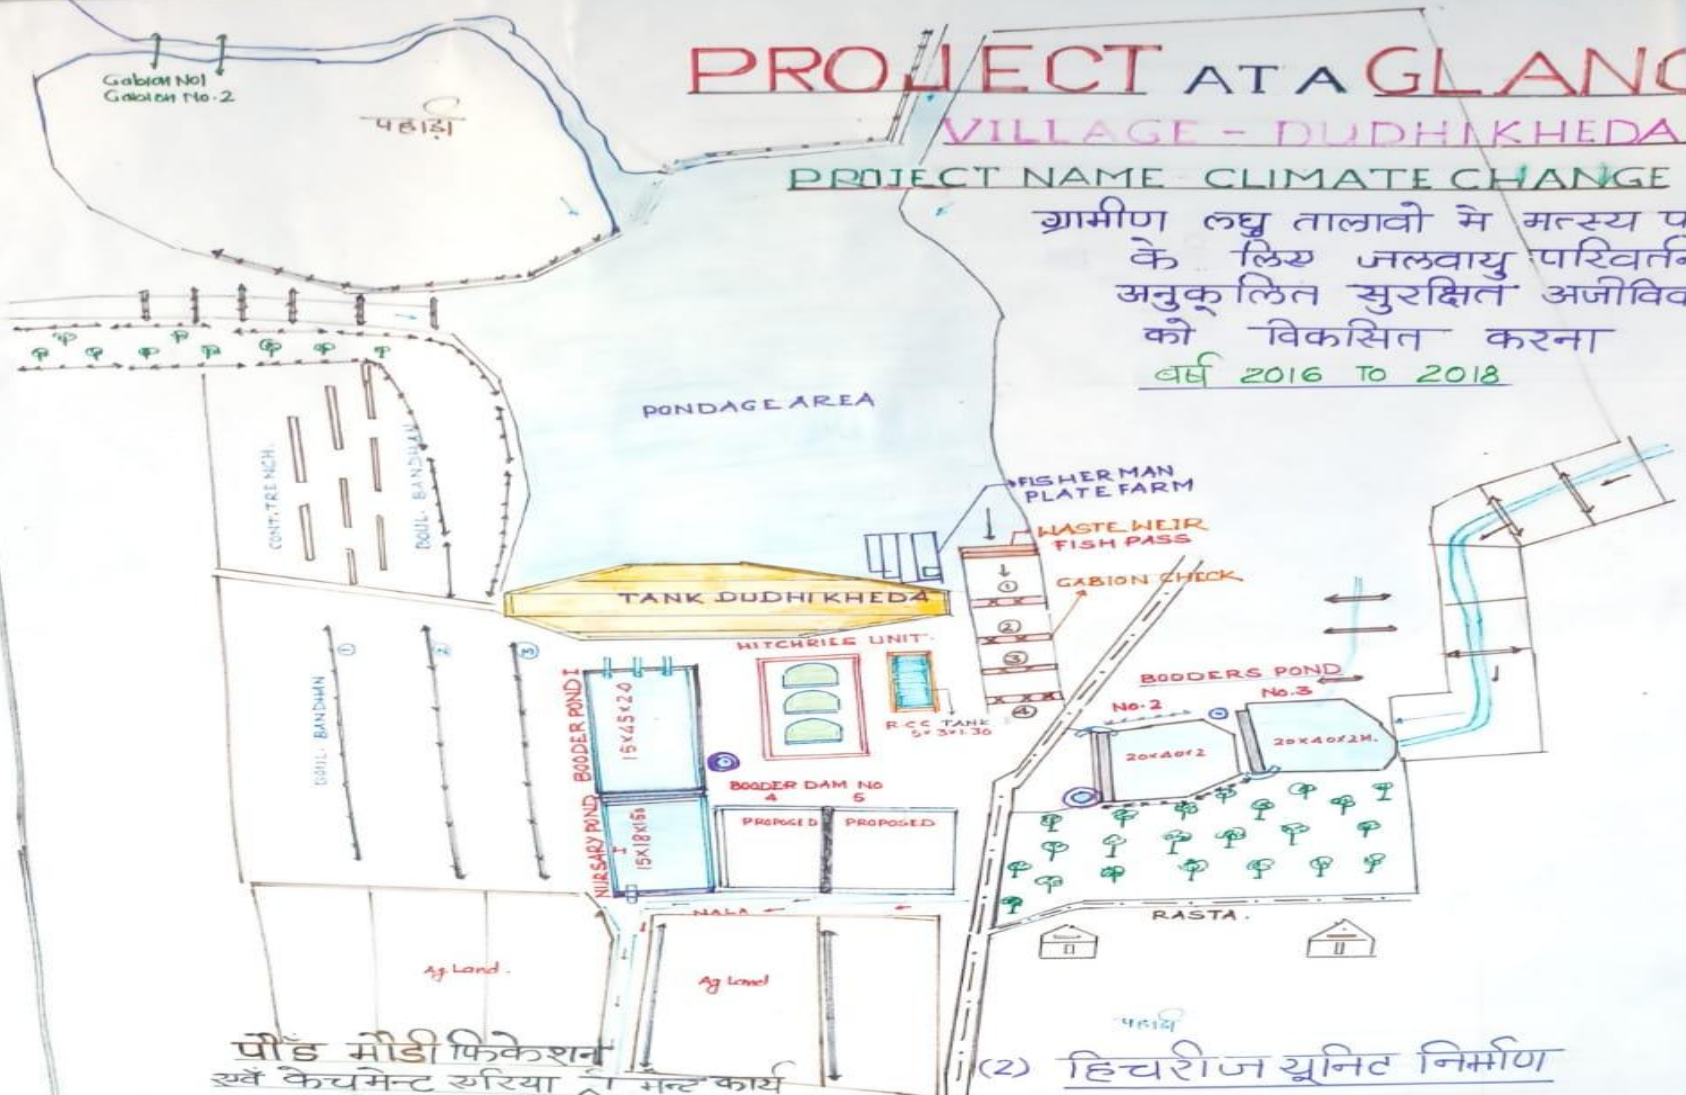 PROJECT AT A GLANC
VILLAGE - DUDHIKHEDA
PROJECT NAME CLIMATE CHANGE
ग्रामीण लघु तालावो मे मत्स्य प
के लिए जलवायु परिवर्तन
अनुकूलित सुरक्षित अजीविक
को विकसित करना
वर्ष 2016 TO 2018
Gabion No1
Gabion No.2
पहाड़ी
PONDAGE AREA
CONT. TRENCH.
BOUL. BANDHAN
FISHER MAN
PLATE FARM
WASTE WEIR
FISH PASS
GABION CHECK
1
2
3
4
TANK DUDHIKHEDA
HITCHRIES UNIT.
R.C.C TANK
5x3x1.30
BOUL. BANDHAN
1
2
3
BOODER POND I
15X45X2.0
NURSARY POND
I
15X18X150
BOODER DAM NO
4 5
PROPOSED PROPOSED
BOODERS POND
No.2 No.3
20x40x2
20x40x2M.
NALA
RASTA.
Ag Land.
Ag Land
पहाड़ी
पौंड मौडीफिकेशन
एवं केचमेन्ट एरिया मेन्ट कार्य
(2) हिचरीज यूनिट निर्माण